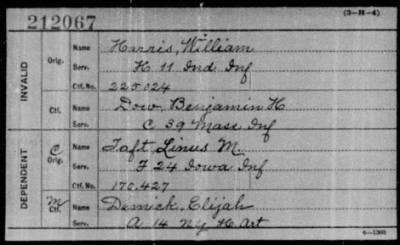 212067
(3-H-4)
INVALID
Orig. Name Harris, William
Serv. H 11 Ind Inf
Ctf. No. 225024
Ctf. Name Dow, Benjamin H
Serv. C 39 Mass Inf
DEPENDENT
C Orig. Name Taft Linus M.
Serv. F 24 Iowa Inf
Ctf. No. 170,427
M Ctf. Name Demick, Elijah
Serv. A 14 Ny H Art